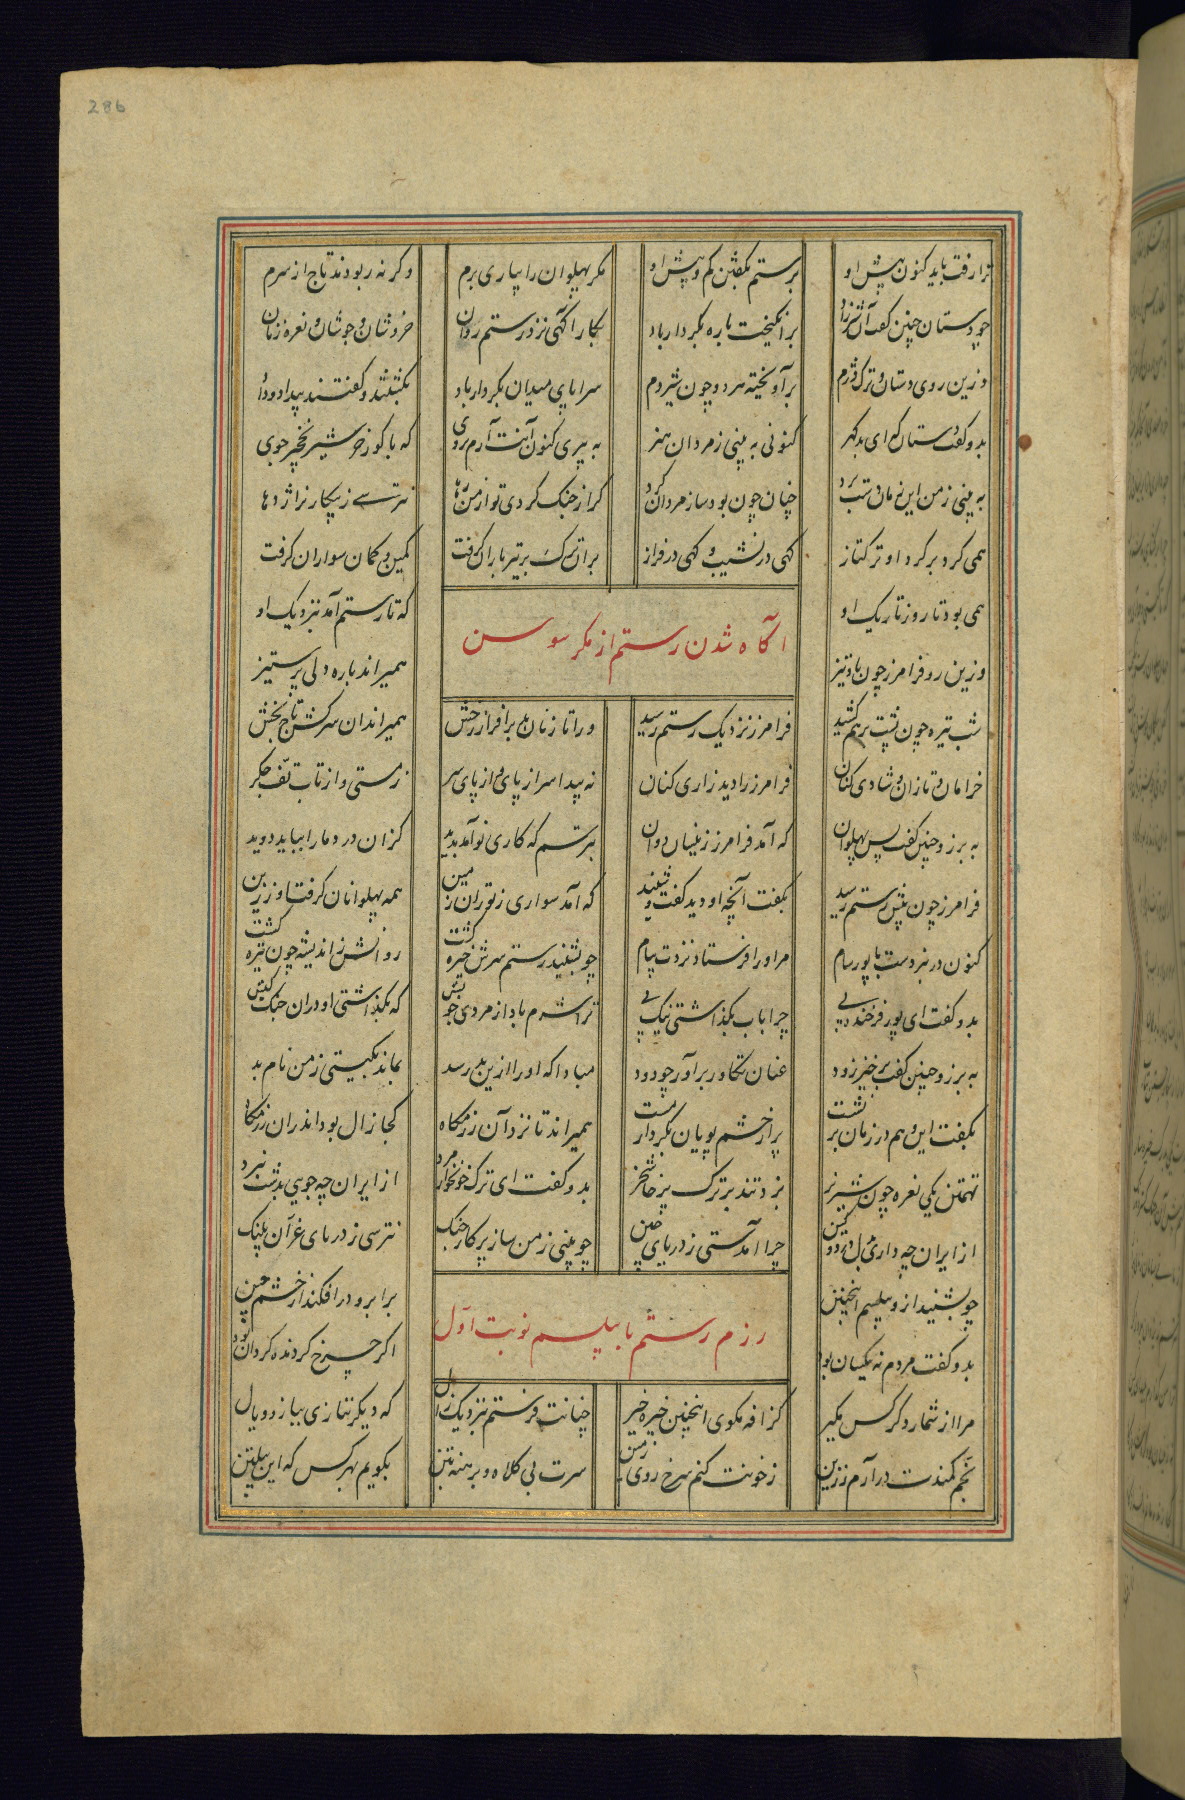 286
ترا رفت باید کنون پیش او برستم بگفتن کم و بیش او مگر پهلوان را بیاری برم وگرنه ربودند تاج از سرم
چو دستان چنین گفت آن شیرزاد برانگیخت باره بکردار باد کجا را آگهی نزد رستم روان خروشان و جوشان و نعره زنان
وزین روی دستان و ترک دژم برآویخته هر دو چون شیر دم سراپای میدان بکردار باد
بدو گفت دستان که ای بدگهر کنونی به بینی ز مردان هنر به پیری کنون آنت آرم بروی که با گور خر شیر نخچیر جوی
به بینی ز من این زمان دستبرد چنان چون بود ساز مردان گرد گر از جنک کردی تو از من رها نترسی ز پیکار نر اژدها
همی کرد بر گرد او ترکتاز گهی در نشیب و گهی در فراز بران ترک بر تیر باران گرفت کمین و کمان سواران گرفت
همی بود تا روز تاریک او که تا رستم آمد بنزدیک او
آگاه شدن رستم از مکر سوسن
وزین رو فرامرز چون باد تیز همیراند باره دلی پرستیز
شب تیره چون شست برهم کشید فرامرز نزدیک رستم رسید ورا تازنان بر افراز رخش همیراند آن سرکش تاج بخش
خرامان و تازان و شادی کنان فرامرز را دید زاری کنان نه پیدا سر از پای و از پای سر ز مستی و از تاب تف جگر
به برزو چنین گفت پس پهلوان که آمد فرامرز زینسان دوان برستم که کاری نو آمد پدید کزان درد ما را بباید دوید
فرامرز چون پیش رستم رسید بگفت آنچه او دید گفت و شنید که آمد سواری ز توران زمین همه پهلوانان گرفت او زرین
کنون در نبردست با پور سام مرا او را فرستاد نزدت پیام چو بشنید رستم سرش خیره گشت روانش ز اندیشه چون تیره گشت
بدو گفت ای پور فرخنده پی چرا باب بگذاشتی نیک پی ترا شرم باد از مردی خویش که بگذاشتی او دران جنک کیش
به برزو چنین گفت برخیز زود عنان تکاور برآور چو دود مبادا که او را ازین بد رسد بماند بگیتی ز من نام بد
بگفت این و هم در زمان برنشست پر از خشم پویان بکردار مست همیراند تا نزد آن رزمگاه کجا زال بود اندران رزمگاه
تهمتن یکی نعره چون شیر نر بزد تند بر ترک پرخاشخر بدو گفت ای ترک خونخوار مرد از ایران چه جویی بدشت نبرد
از ایران چه داری بدل درد و کین چرا آمدستی ز دریای چین چو بینی ز من ساز پیکار جنک نترسی ز دریای غران پلنک
چو بشنید ازو پیلسم اینچنین برابرو در افکند از خشم چین
رزم رستم با پیلسم نوبت اول
بدو گفت مردم نه یکسان بود اگر چرخ گردنده گردان بود
مرا از شمار دگر کس مگیر گزافه مگوی اینچنین خیره خیر چنانت فرستم بنزدیک زال که دیگر نتازی ببازو و یال
بخم کمندت درآرم ز زین ز خونت کنم سرخ روی زمین سرت بی کلاه و برهنه بتن بگویم بهر کس که این پیلتن